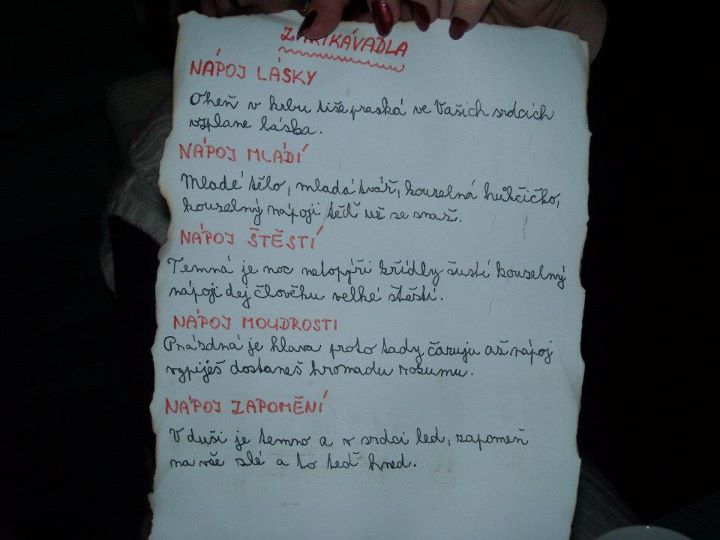 ZAŘÍKÁVADLA
NÁPOJ LÁSKY
Oheň v krbu tiše praská ve Vašich srdcích
vzplane láska.
NÁPOJ MLÁDÍ
Mladé tělo, mladá tvář, kouzelná hulčičko,
kouzelný nápoji teď už se snaž.
NÁPOJ ŠTĚSTÍ
Temná je noc netopýři křídly šustí kouzelný
nápoji dej člověku velké štěstí.
NÁPOJ MOUDROSTI
Prázdná je hlava proto tady čaruju až nápoj
vypiješ dostaneš hromadu rozumu.
NÁPOJ ZAPOMĚNÍ
V duši je temno a v srdci led, zapomeň
na vše zlé a to teď hned.